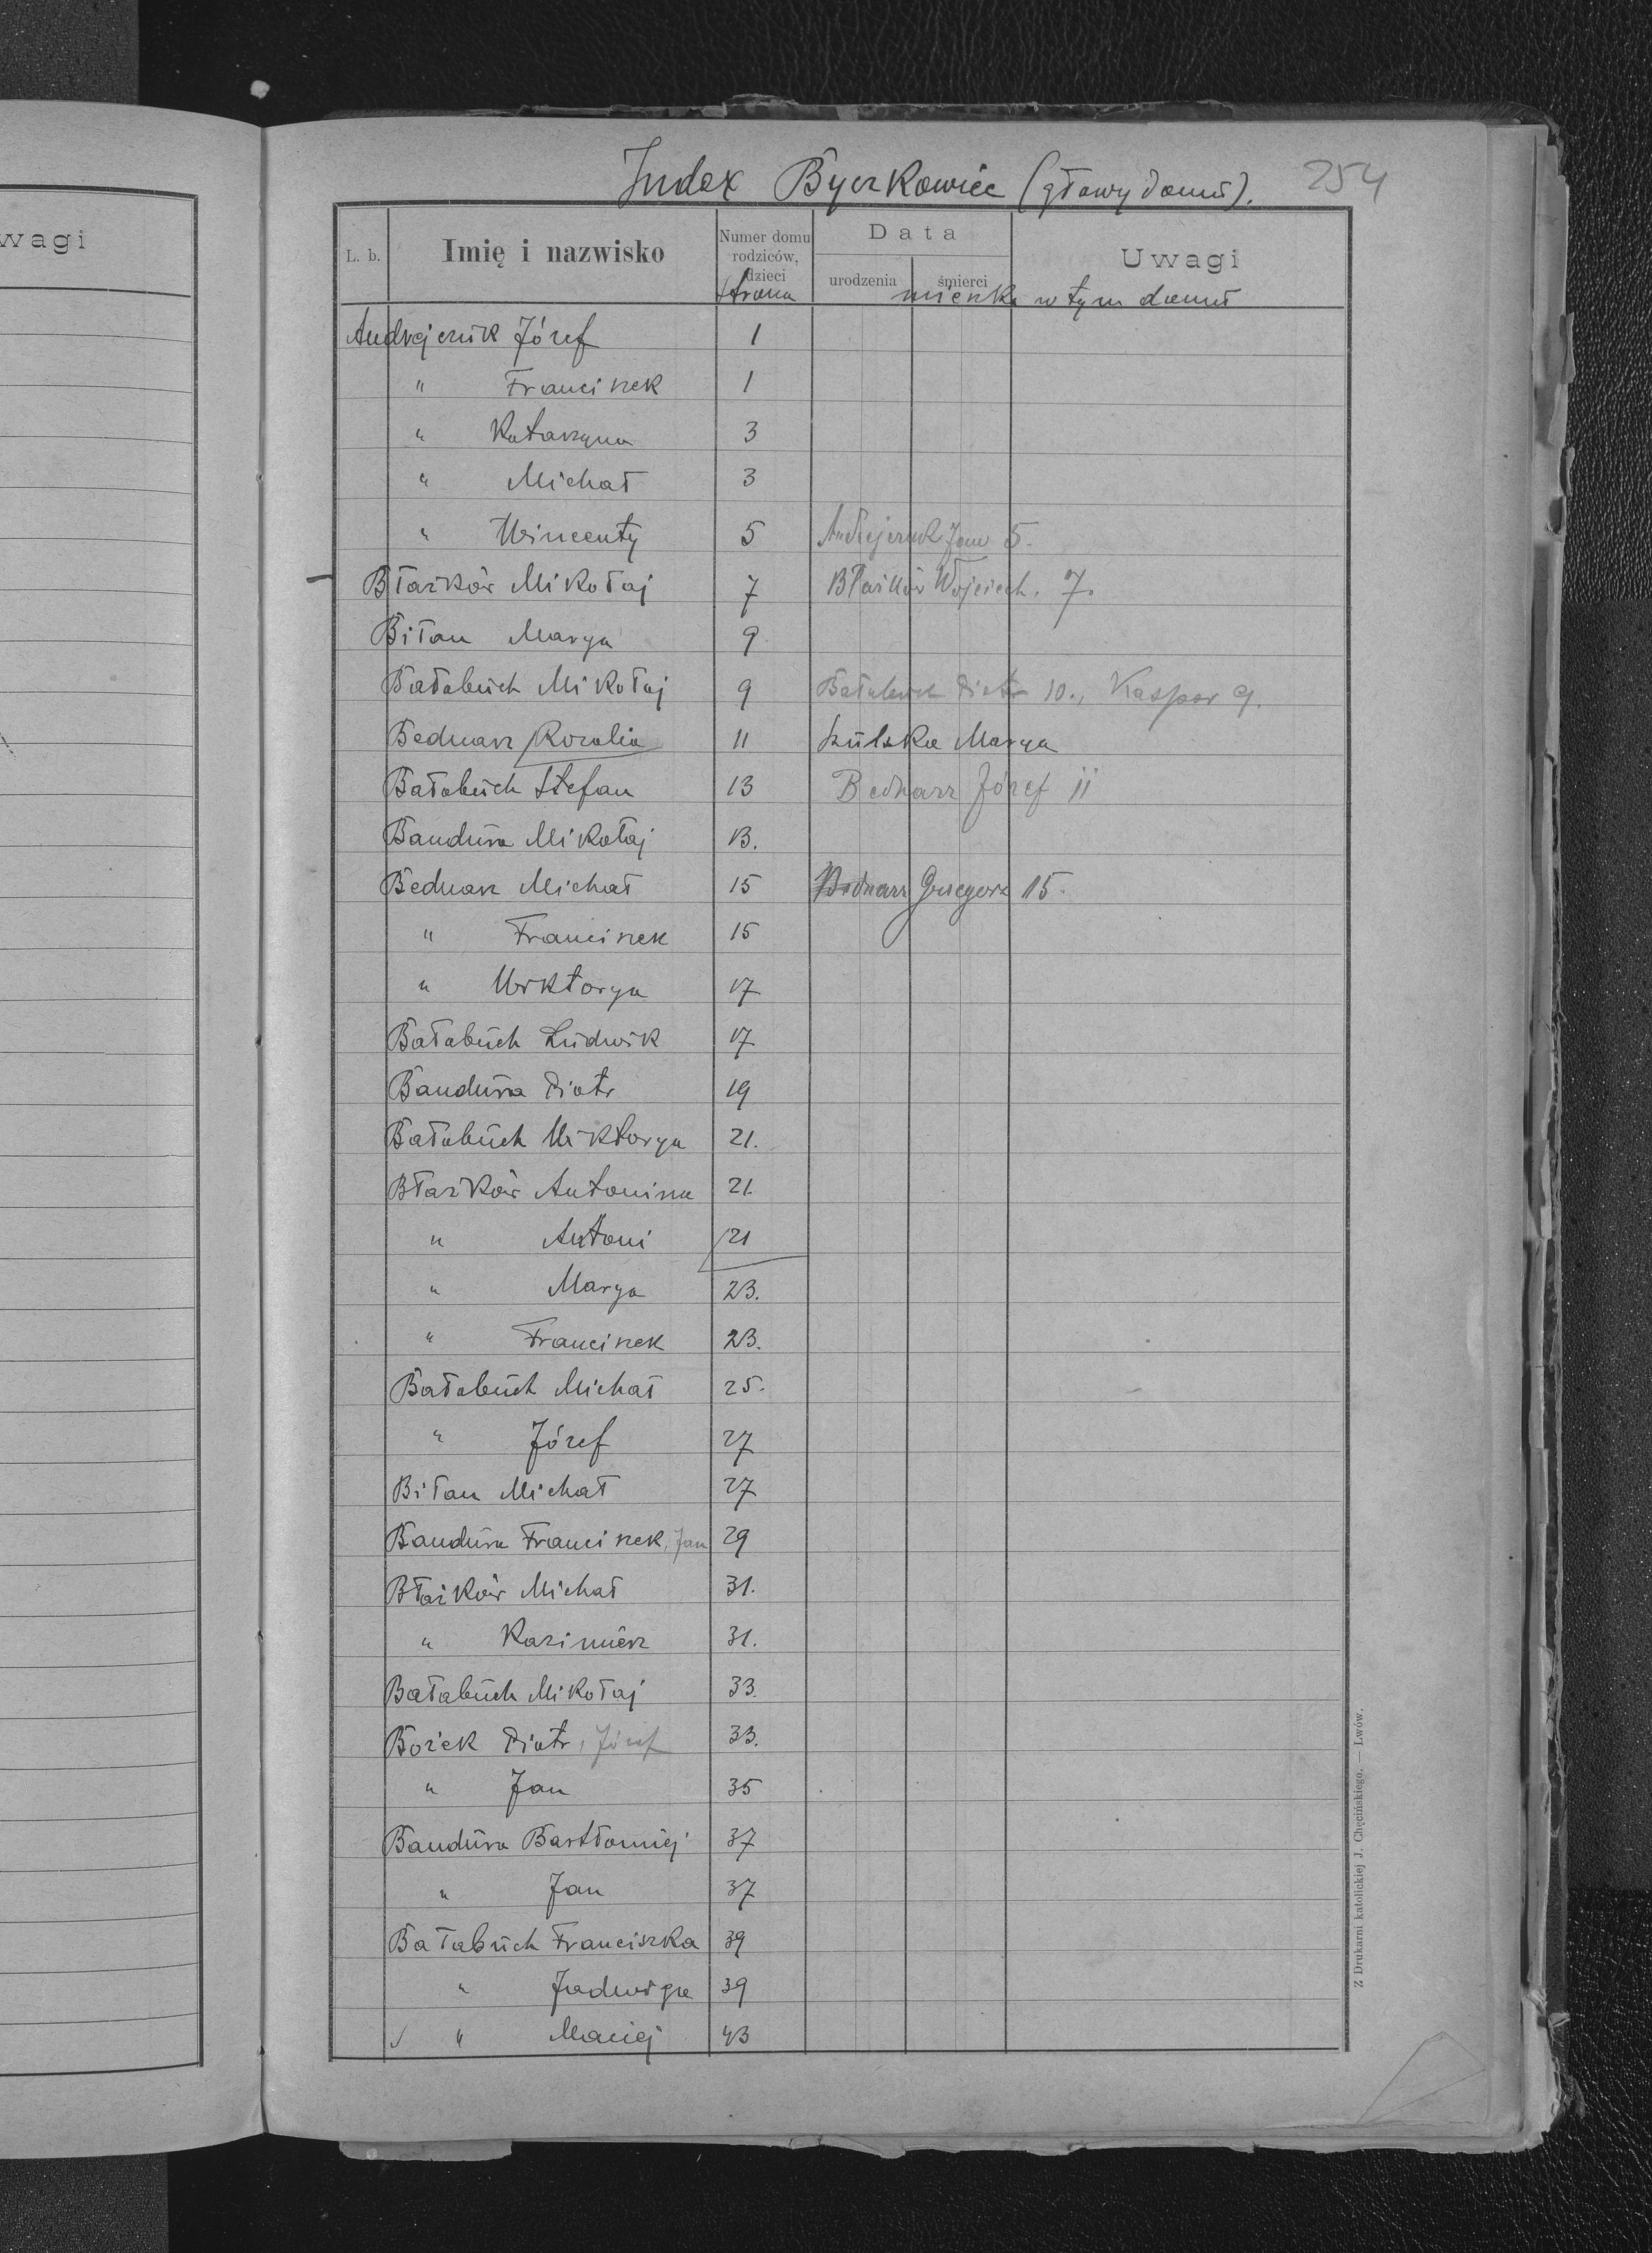 wagi
Index Byczkowiec (głowy domu).
254
L. b. Imię i nazwisko Numer domu rodziców, dzieci Data urodzenia śmierci Uwagi
strona mieszka w tym domu
Andrzejczuk Józef 1
" Franciszek 1
" Katarzyna 3
" Michał 3
" Wincenty 5 Andrzejczuk Jan 5.
Błażków Mikołaj 7 Błażków Wojciech. 7.
Biłan Marya 9
Bałabuch Mikołaj 9 Bałabuch Piotr 10., Kasper 9.
Bednarz Rozalia 11 Szulska Marya
Bałabuch Stefan 13 Bednarz Józef 11
Bandura Mikołaj 13.
Bednarz Michał 15 Bednarz Grzegorz 15.
" Franciszek 15
" Wiktorya 17
Bałabuch Ludwik 17
Bandura Piotr 19
Bałabuch Wiktorya 21.
Błażków Antonina 21.
" Antoni 21
" Marya 23.
" Franciszek 23.
Bałabuch Michał 25.
" Józef 27
Biłan Michał 27
Bandura Franciszek, Jan 29
Błażków Michał 31.
" Kazimierz 31.
Bałabuch Mikołaj 33.
Bożek Piotr, Józef 33.
" Jan 35
Bandura Bartłomiej 37
" Jan 37
Bałabuch Franciszka 39
" Jadwiga 39
✓ " Maciej 43
Z Drukarni katolickiej J. Chęcińskiego. — Lwów.